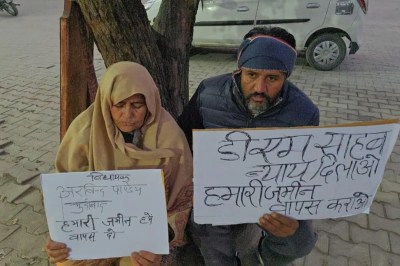 विधायक
अरविन्द पाण्डेय
हमारी जमीन हमें
वापस दो
डीएम साहब
न्याय दिलाओ
हमारी जमीन
वापस कराओ